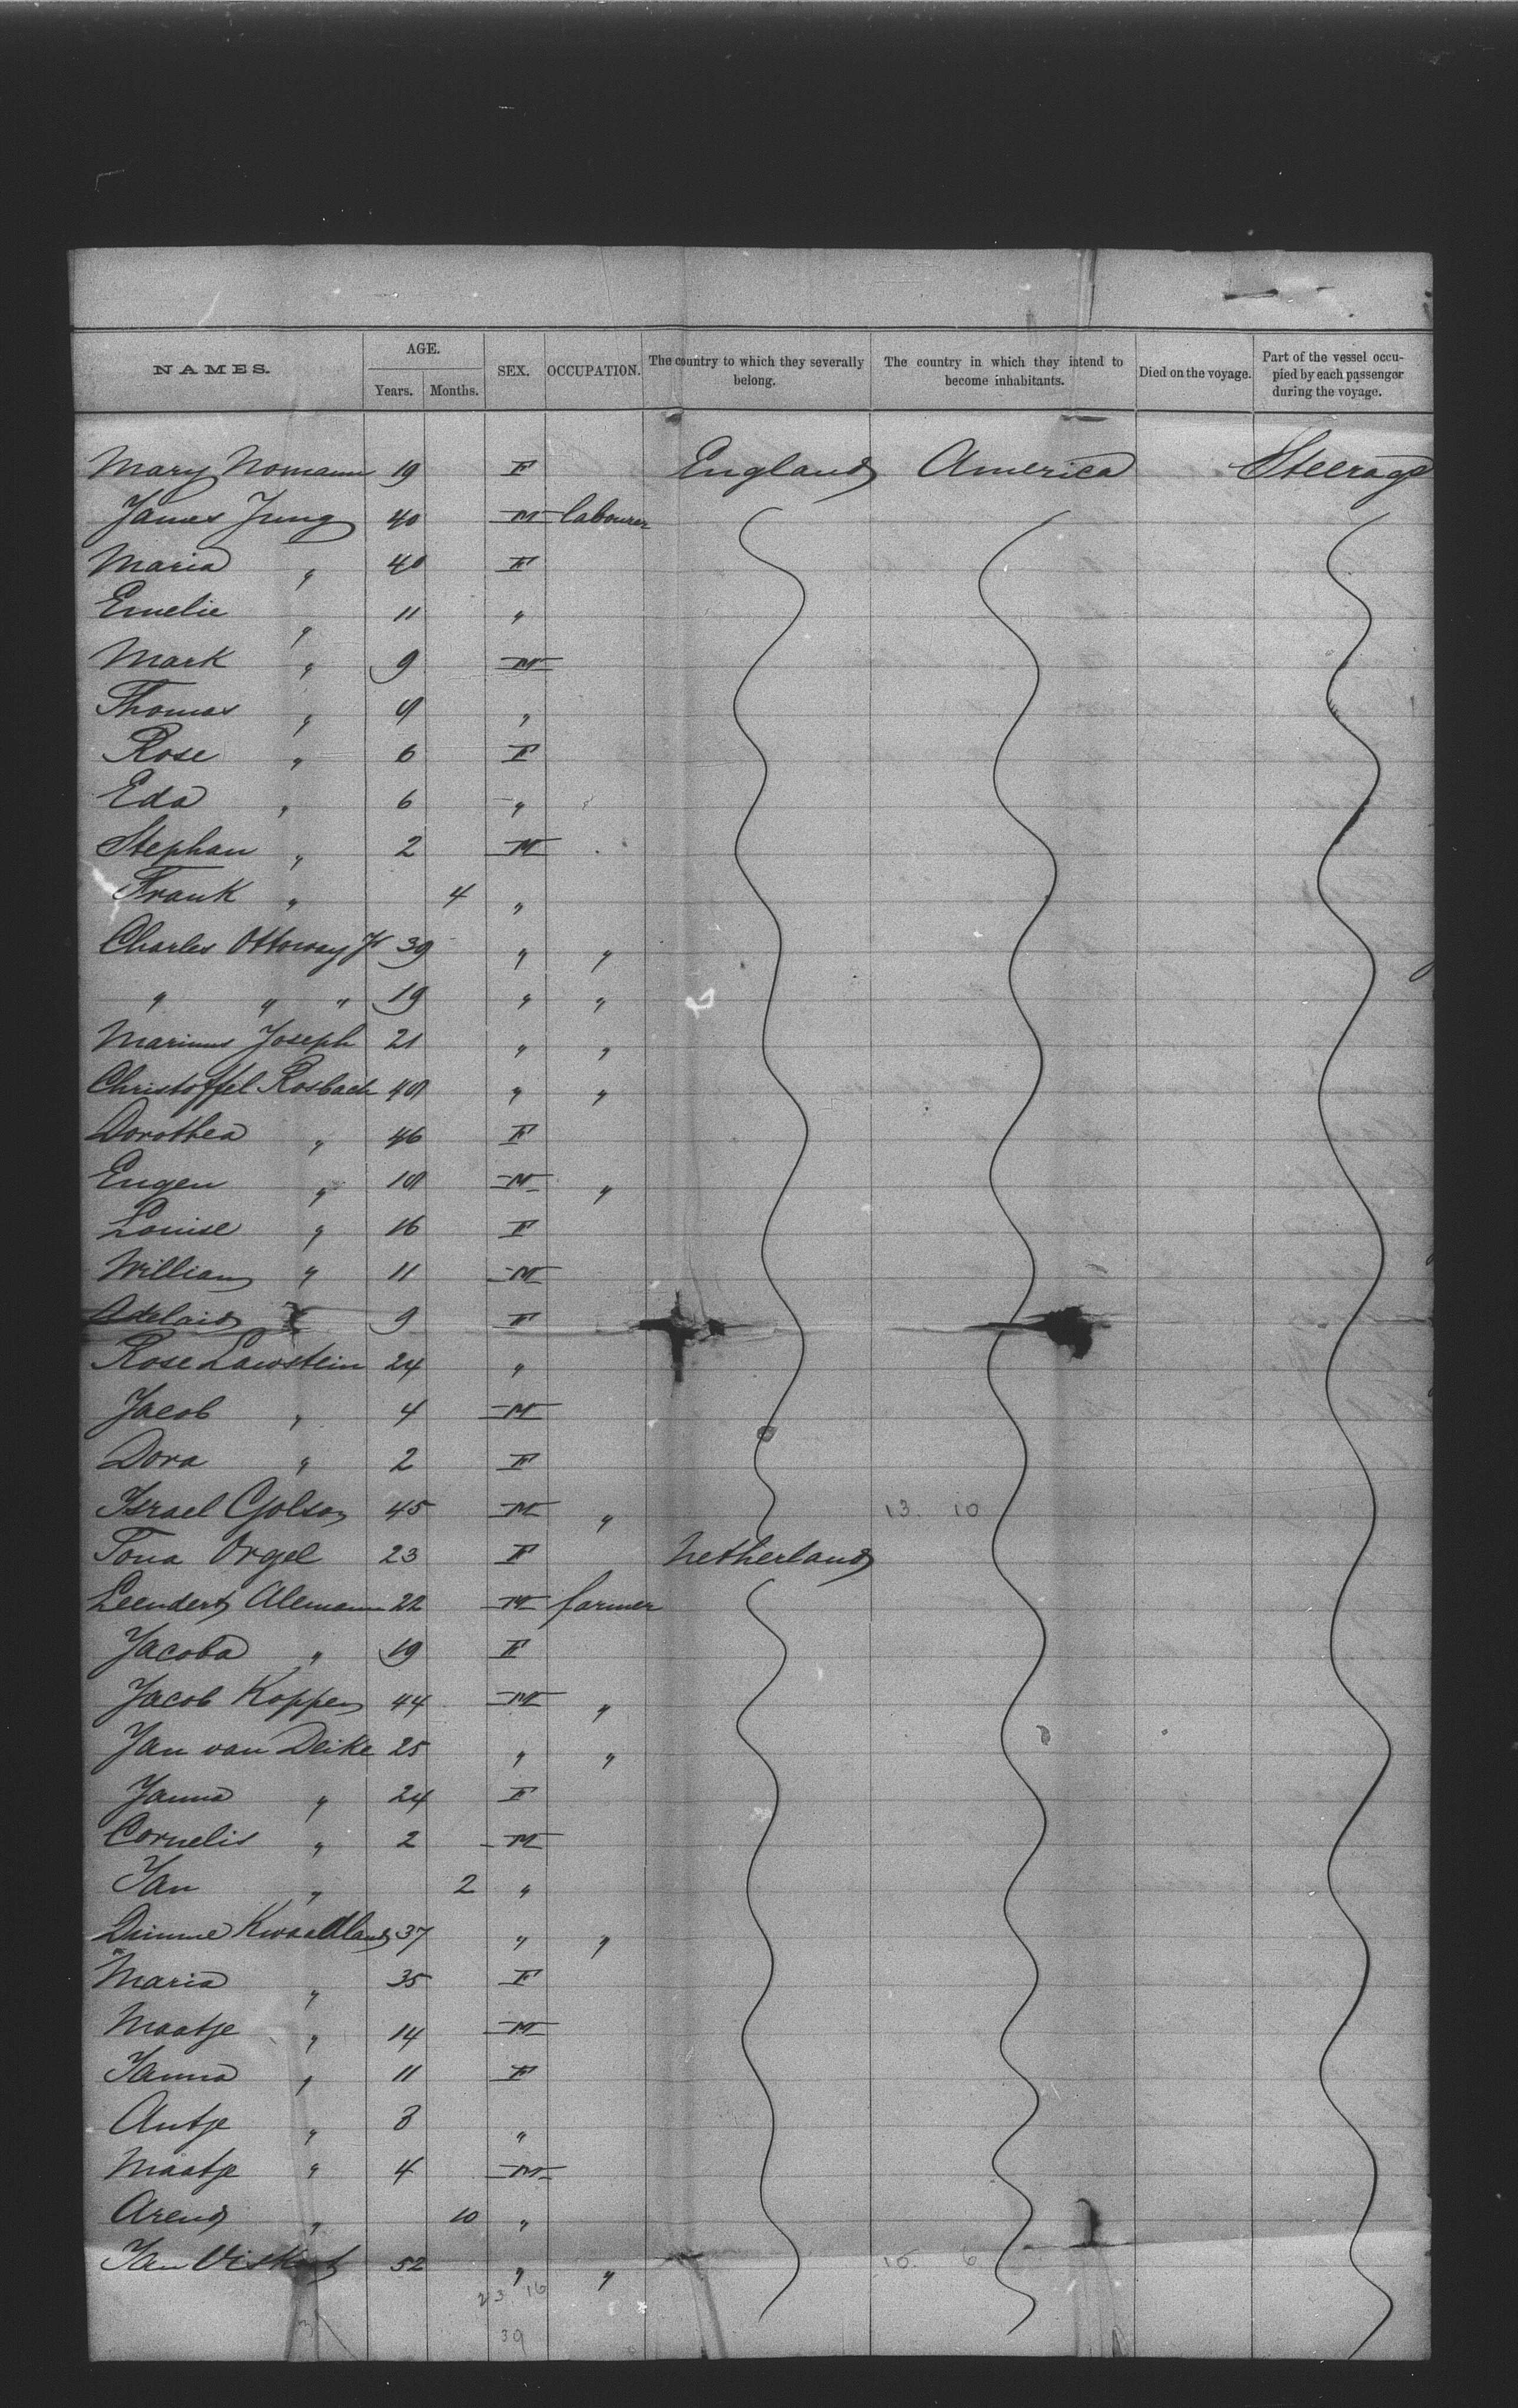 NAMES. AGE. Years. Months. SEX. OCCUPATION. The country to which they severally belong. The country in which they intend to become inhabitants. Died on the voyage. Part of the vessel occupied by each passenger during the voyage.
Mary Nomann 19 F England America Steerage
James Jung 40 M labourer
Maria " 40 F
Emelie " 11 "
Mark " 9 M
Thomas " 9 "
Rose " 6 F
Eda " 6 "
Stephan " 2 M
Frank " 4 "
Charles Ottoway 39 " "
" " " 19 " "
Marinus Joseph 21 " "
Christoffel Rosbach " "
Dorothea " 46 F
Eugen " M "
Louise " 16 F
William " 11 M
Adelaid " 9 F
Rose Lawstein 24 "
Jacob " 4 M
Dora " 2 F
Israel 45 M " 13. 10
Tona Orgel 23 F Netherland
Leendert Aleman 22 M farmer
Jacoba " 19 F
Jacob Koppen 44 M "
Jan van Deike 25 " "
Janna " 24 F
Cornelis " 2 M
Jan " 2 "
Kwaadland 37 " "
Maria " 35 F
Maatje " 14 M
Janna " 11 F
Antje " 8 "
Maatje " 4 M
Arend " 10 "
Jan 52 " " 6
23 16
39